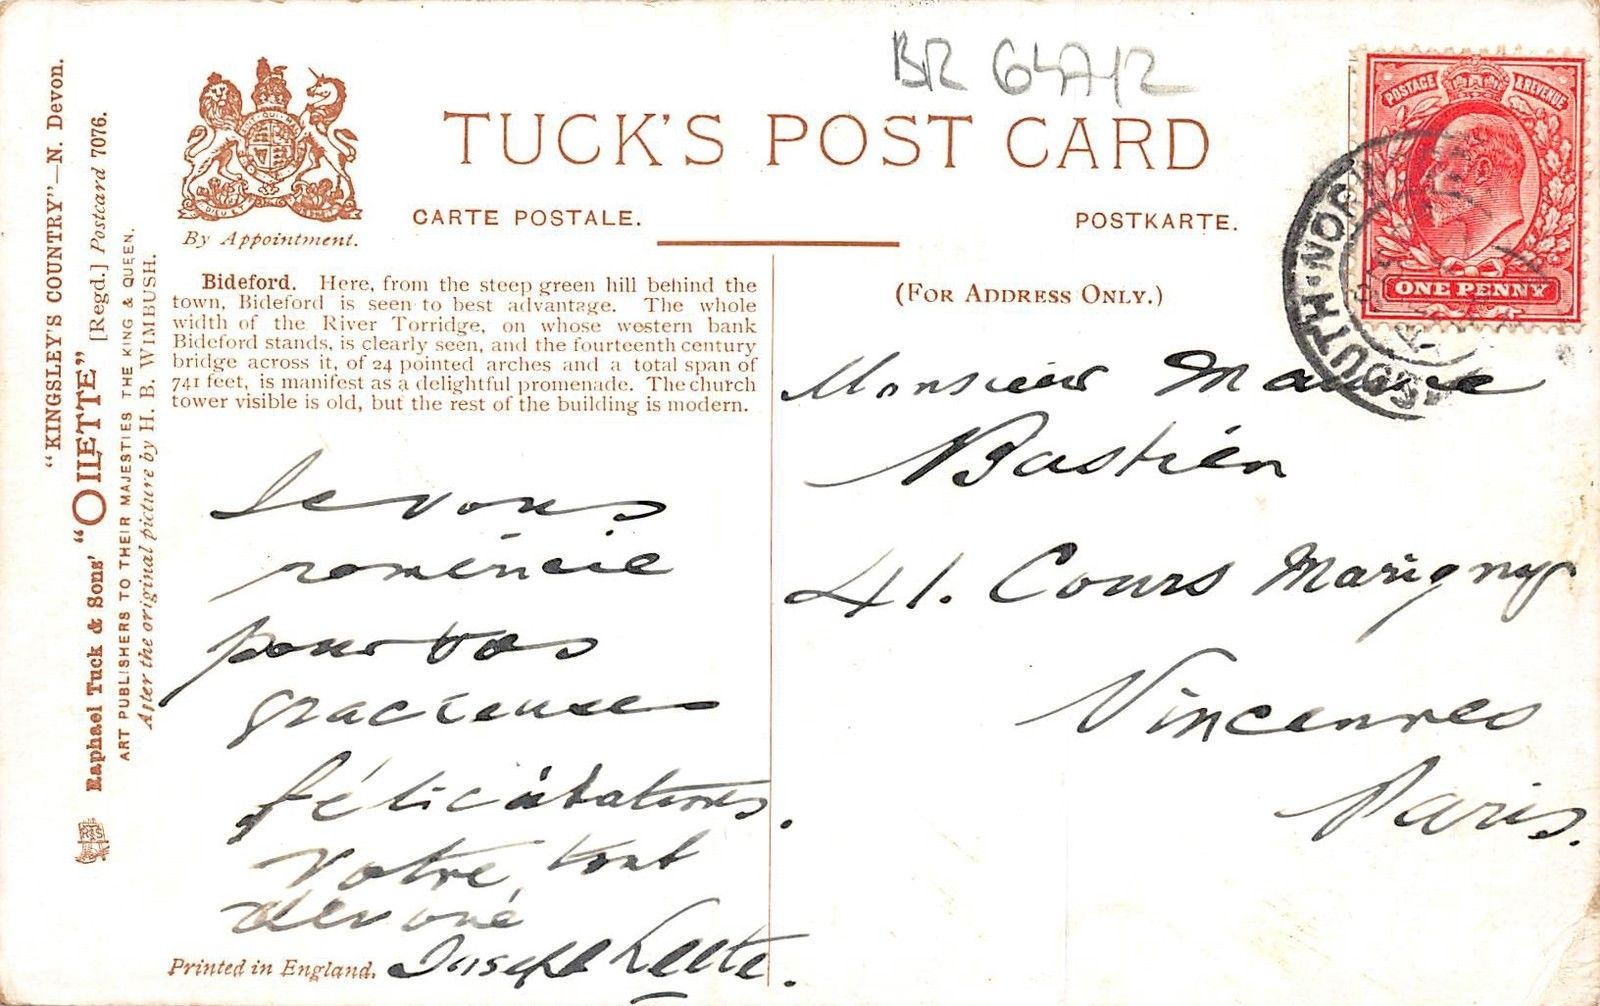 BR 64712
TUCK'S POST CARD
CARTE POSTALE.
POSTKARTE.
By Appointment.
"KINGSLEY'S COUNTRY"—N. Devon.
Raphael Tuck & Sons' "OILETTE" [Regd.] Postcard 7076.
ART PUBLISHERS TO THEIR MAJESTIES THE KING & QUEEN.
After the original picture by H. B. WIMBUSH.
Bideford. Here, from the steep green hill behind the
town, Bideford is seen to best advantage. The whole
width of the River Torridge, on whose western bank
Bideford stands, is clearly seen, and the fourteenth century
bridge across it, of 24 pointed arches and a total span of
741 feet, is manifest as a delightful promenade. The church
tower visible is old, but the rest of the building is modern.
Je vous
remercie
pour vos
gracieuses
félicitations.
Votre tout
dévoué
Joseph Leete.
Printed in England.
(FOR ADDRESS ONLY.)
Monsieur Maurice
Bastién
41. Cours Marigny
Vincennes
Paris.
POSTAGE & REVENUE
ONE PENNY
SOUTH·NOR